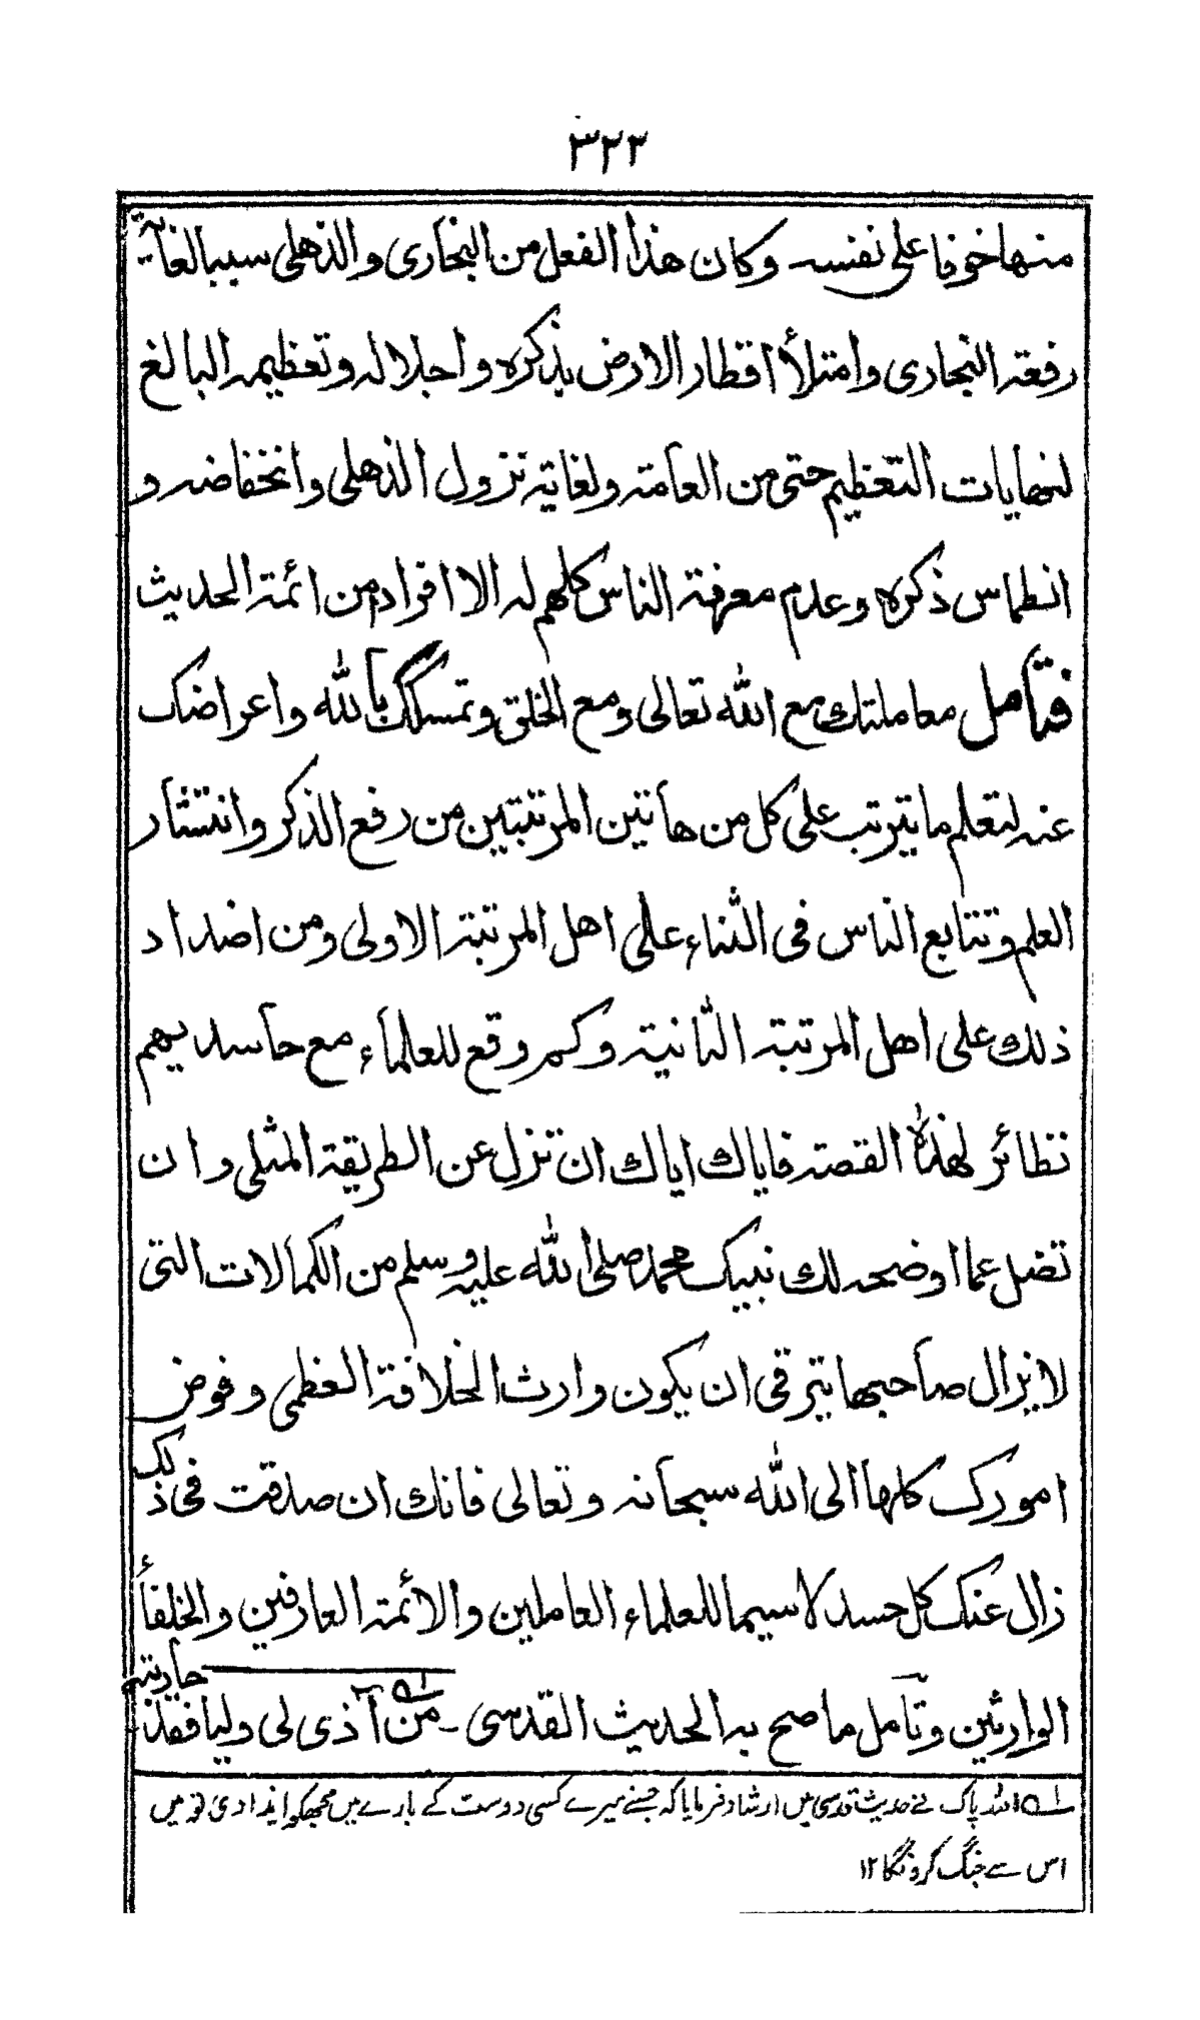 ٣٢٢
منها خوفا على نفسه وكان هذا الفعل من البخارى والذهلى سببا لغاية
رفعة البخارى وامتلأ اقطار الارض بذكره واجلاله وتعظيمه البالغ
لنهايات التعظيم حتى من العامة ولغاية نزول الذهلى وانخفاضه و
انطماس ذكره وعدم معرفة الناس كلهم له الا افراد من ائمة الحديث
فتأمل معاملتك مع الله تعالى ومع الخلق وتمسكك بالله واعراضك
عنه لتعلم ما يترتب على كل من هاتين المرتبتين من رفع الذكر وانتشار
العلم وتتابع الناس فى الثناء على اهل المرتبة الاولى ومن اضداد
ذلك على اهل المرتبة الثانية وكم وقع للعلماء مع حاسديهم
نظائر لهذه القصة فاياك اياك ان تنزل عن الطريقة المثلى وان
تضل عما اوضحه لك نبيك محمد صلى الله عليه وسلم من الكمالات التى
لا يزال صاحبها يترقى ان يكون وارث الخلافة العظمى وفوض
امورك كلها الى الله سبحانه وتعالى فانك ان صدقت فى ذلك
زال عنك كل حسد لا سيما للعلماء العاملين والائمة العارفين والخلفاء
الوارثين وتأمل ما صح به الحديث القدسى ـ من آذى لى وليا فقد حاربته
لـه اللہ پاک نے حدیث قدسی میں ارشاد فرمایا کہ جسنے میرے کسی دوست کے بارے میں مجھکو ایذا دی تو میں
اس سے جنگ کرونگا ١٢